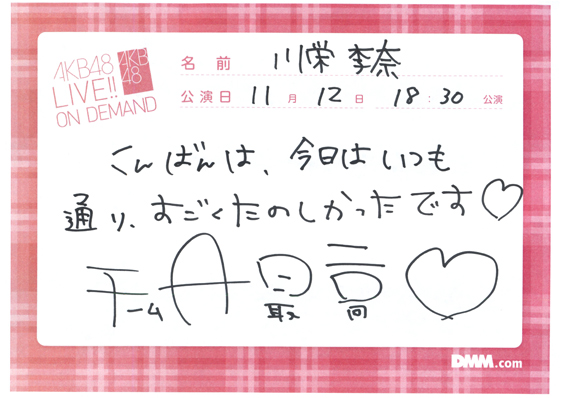 AKB48
LIVE!!
ON DEMAND
AKB
48
名 前 川栄 李奈
公演日 11 月 12 日 18 : 30 公演
こんばんは、今日はいつも
通り、すごくたのしかったです♡
チームA最高♡
DMM.com